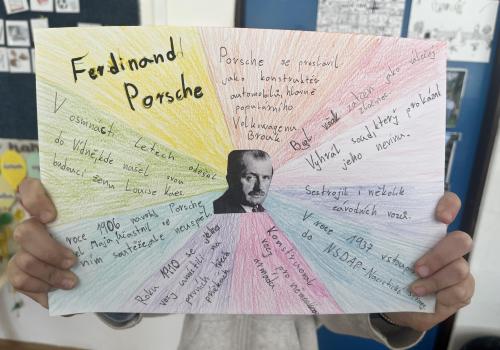 Ferdinand
Porsche
Porsche se proslavil
jako konstruktér
automobilů, hlavně
populárního
Volkswagenu
Brouk
Byl však zatčen jako válečný
zločinec.
Vyhrál soud, který prokázal
jeho nevinu.
Sestrojil i několik
závodních vozů.
V roce 1937 vstoupil
do NSDAP-Nacistické
Konstruoval
vozy pro německou
armádu
Roku 1910 se jeho
vozy umístily na
prvních třech
příčkách
roce 1906 navrhl Porsche
Maja, účastnil se
ním soutěže, ale neuspěl
V osmnácti letech odešel
do Vídně, kde našel svou
budoucí ženu Louise Kaes